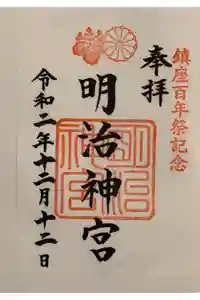 鎮座百年祭記念
奉拝
明治神宮
令和二年十二月十二日